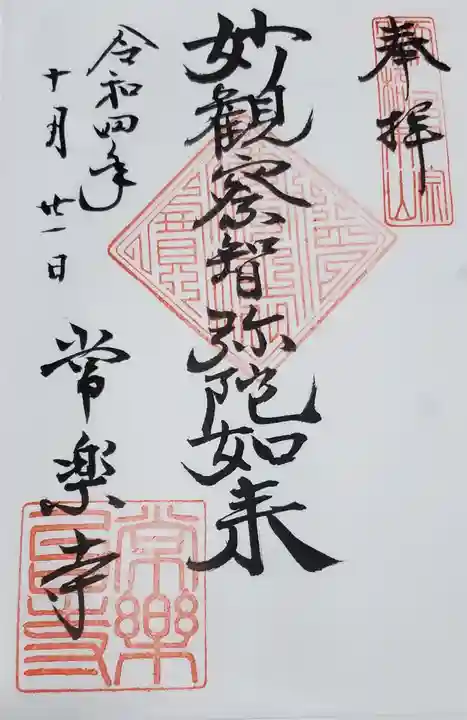 奉拝
妙観察智弥陀如来
令和四年
十月廿一日
常楽寺
常樂